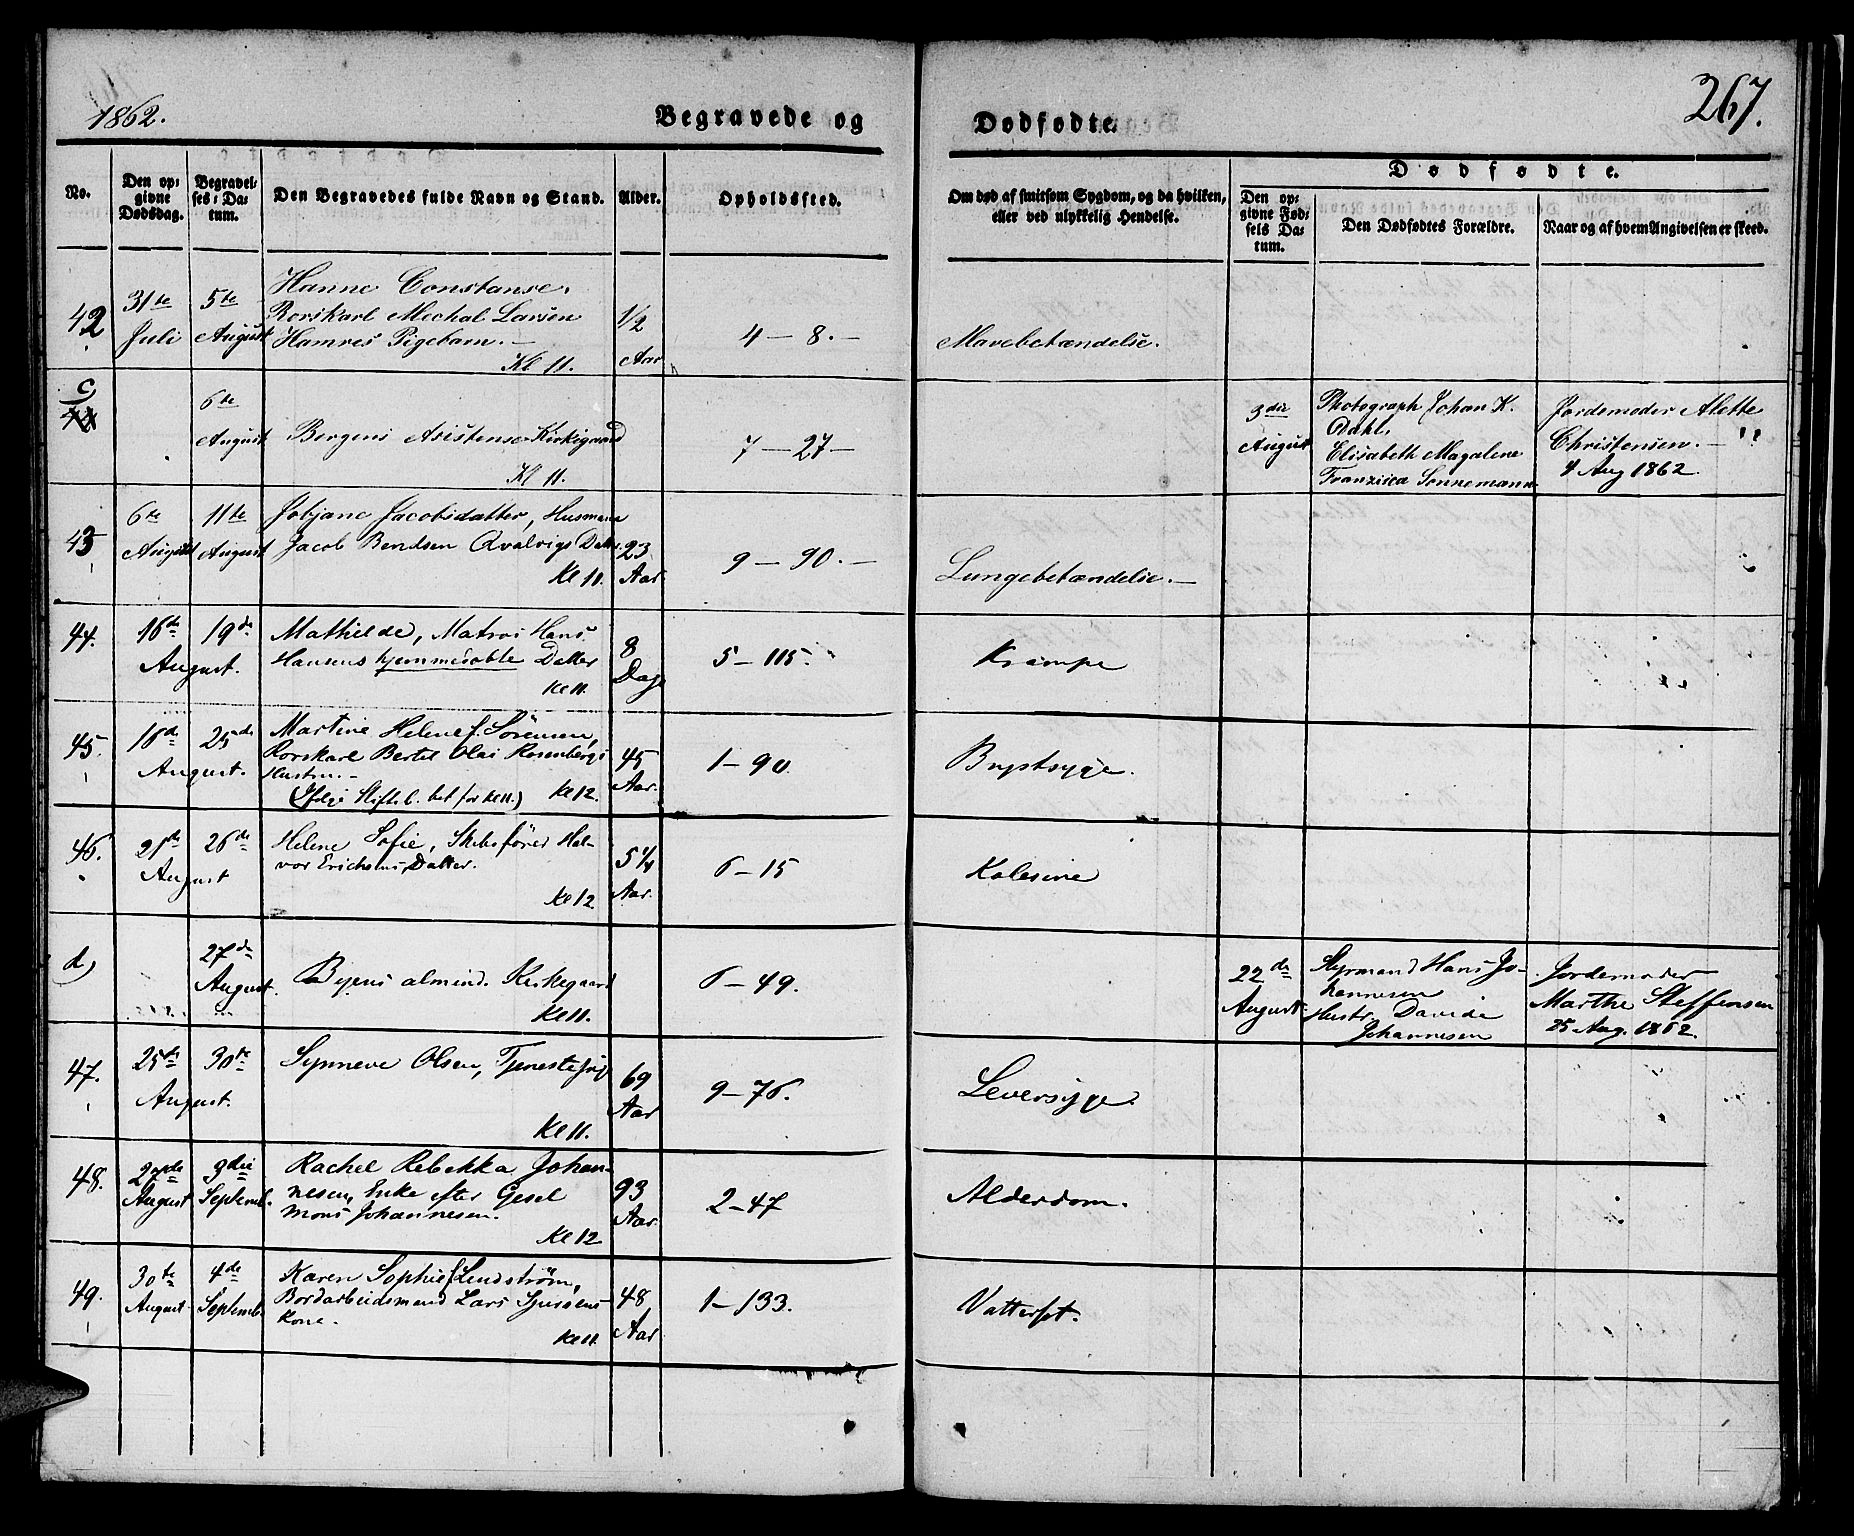 1862.
Begravede og
Dødfødte.
267.
No.
Den op-
givne
Dødsdag.
Begravel-
ses-Da-
tum.
Den Begravedes fulde Navn og Stand.
Alder.
Opholdssted.
Om død af smitsom Sygdom, og da hvilken,
eller ved ulykkelig Hendelse.
Dødfødte.
Den op-
givne Fød-
sels Da-
tum.
Den Dødfødtes Forældre.
Naar og af hvem Angivelsen er skeed.
42
31te
Juli
5te
August
Hanne Constanse,
Rorskarl Mechal Larsen
Hamres Pigebarn.
Kl 11.
1/2
Aar
4 — 8. —
Mavebetændelse.
c)
6te
August
Bergens Asistense Kirkigaard
Kl 11.
7 — 27 —
3die
August
Photograph Johan K.
Dahl,
Elisabeth Magalene
Franzisca Sonnemann
Jordemoder Alette
Christensen. —
4 Aug 1862
43
6te
August
11te
August
Jobjane Jacobsdatter, Husmann
Jacob Bendsen Qvalvigs Datter.
Kl 11.
23
Aar
9 — 90. —
Lungebetændelse. —
44.
16de
August.
19de
Mathilde, Matros Hans
Hansens hjemmedøbte Datter
Kl 11.
8
Dage
5 — 115.
Krampe
45.
18de
August.
25de
Martine Helene f. Sörensen,
Rorskarl Bertel Olai Rosenbergs
Hustru. —
Kl 12.
45
Aar.
1 — 90.
Brystsyge.
46.
21de
August
26de
Helene Sofie, Skibsförer Hal-
vor Erichsens Datter.
Kl 12
5 1/4
Aar.
6 — 15
Kolerine
d)
27de
August.
Byens almind. Kirkegaard
Kl 11.
6 — 49.
22de
August
Styrmand Hans Jo-
hannesen
Hustr. Davide
Johannesen
Jordemoder
Marthe Steffensen
25 Aug. 1862.
47.
25te
August.
30te
Synneve Olsen, Tjenestepig
Kl 11.
69
Aar
9 — 76.
Leversyge.
48.
27de
August
3die
Septemb.
Rachel Rebekka Johan-
nesen, Enke efter Gesel
Mons Johannesen.
Kl 12
93
Aar.
2 — 47
Alderdom.
49.
30te
August
4de
Septemb
Karen Sophie f. Lindström,
Bordarbeidsmand Lars Sjursens
Kone.
Kl 11.
48
Aar
1 — 133.
Vattersot.